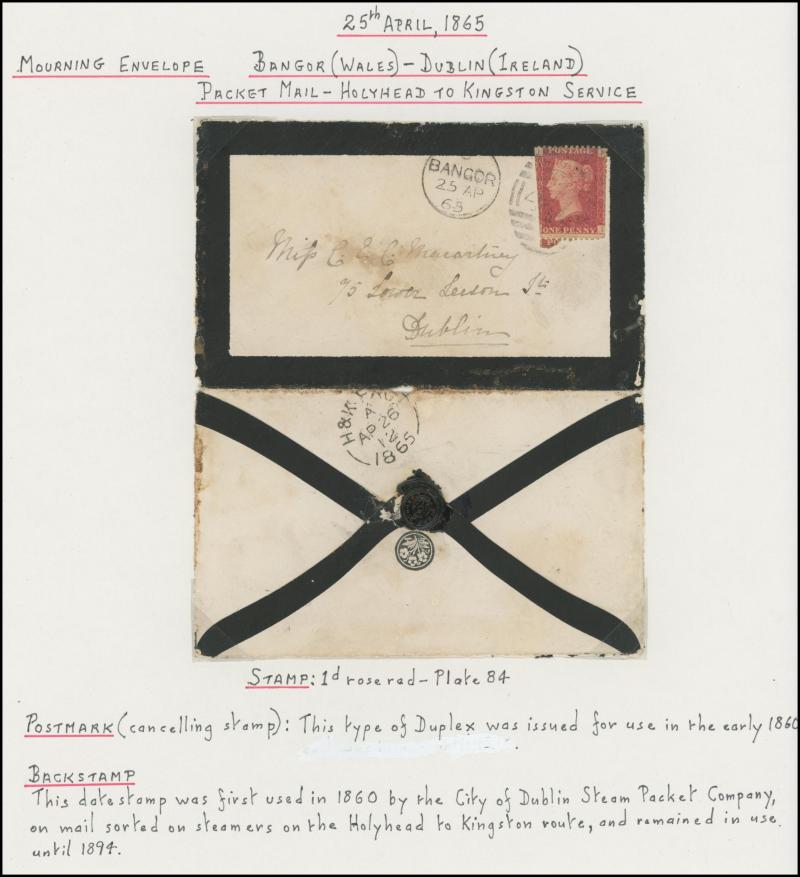 25th APRIL, 1865
MOURNING ENVELOPE BANGOR (WALES) - DUBLIN (IRELAND)
PACKET MAIL - HOLYHEAD TO KINGSTON SERVICE
BANGOR
25 AP
65
POSTAGE
ONE PENNY
Miss C. E. C. Macartney
75 Lower Leeson St.
Dublin
H&K PACKET
AP
1865
STAMP: 1d rose red - Plate 84
POSTMARK (cancelling stamp): This type of Duplex was issued for use in the early 1860
BACKSTAMP
This datestamp was first used in 1860 by the City of Dublin Steam Packet Company,
on mail sorted on steamers on the Holyhead to Kingston route, and remained in use
until 1894.